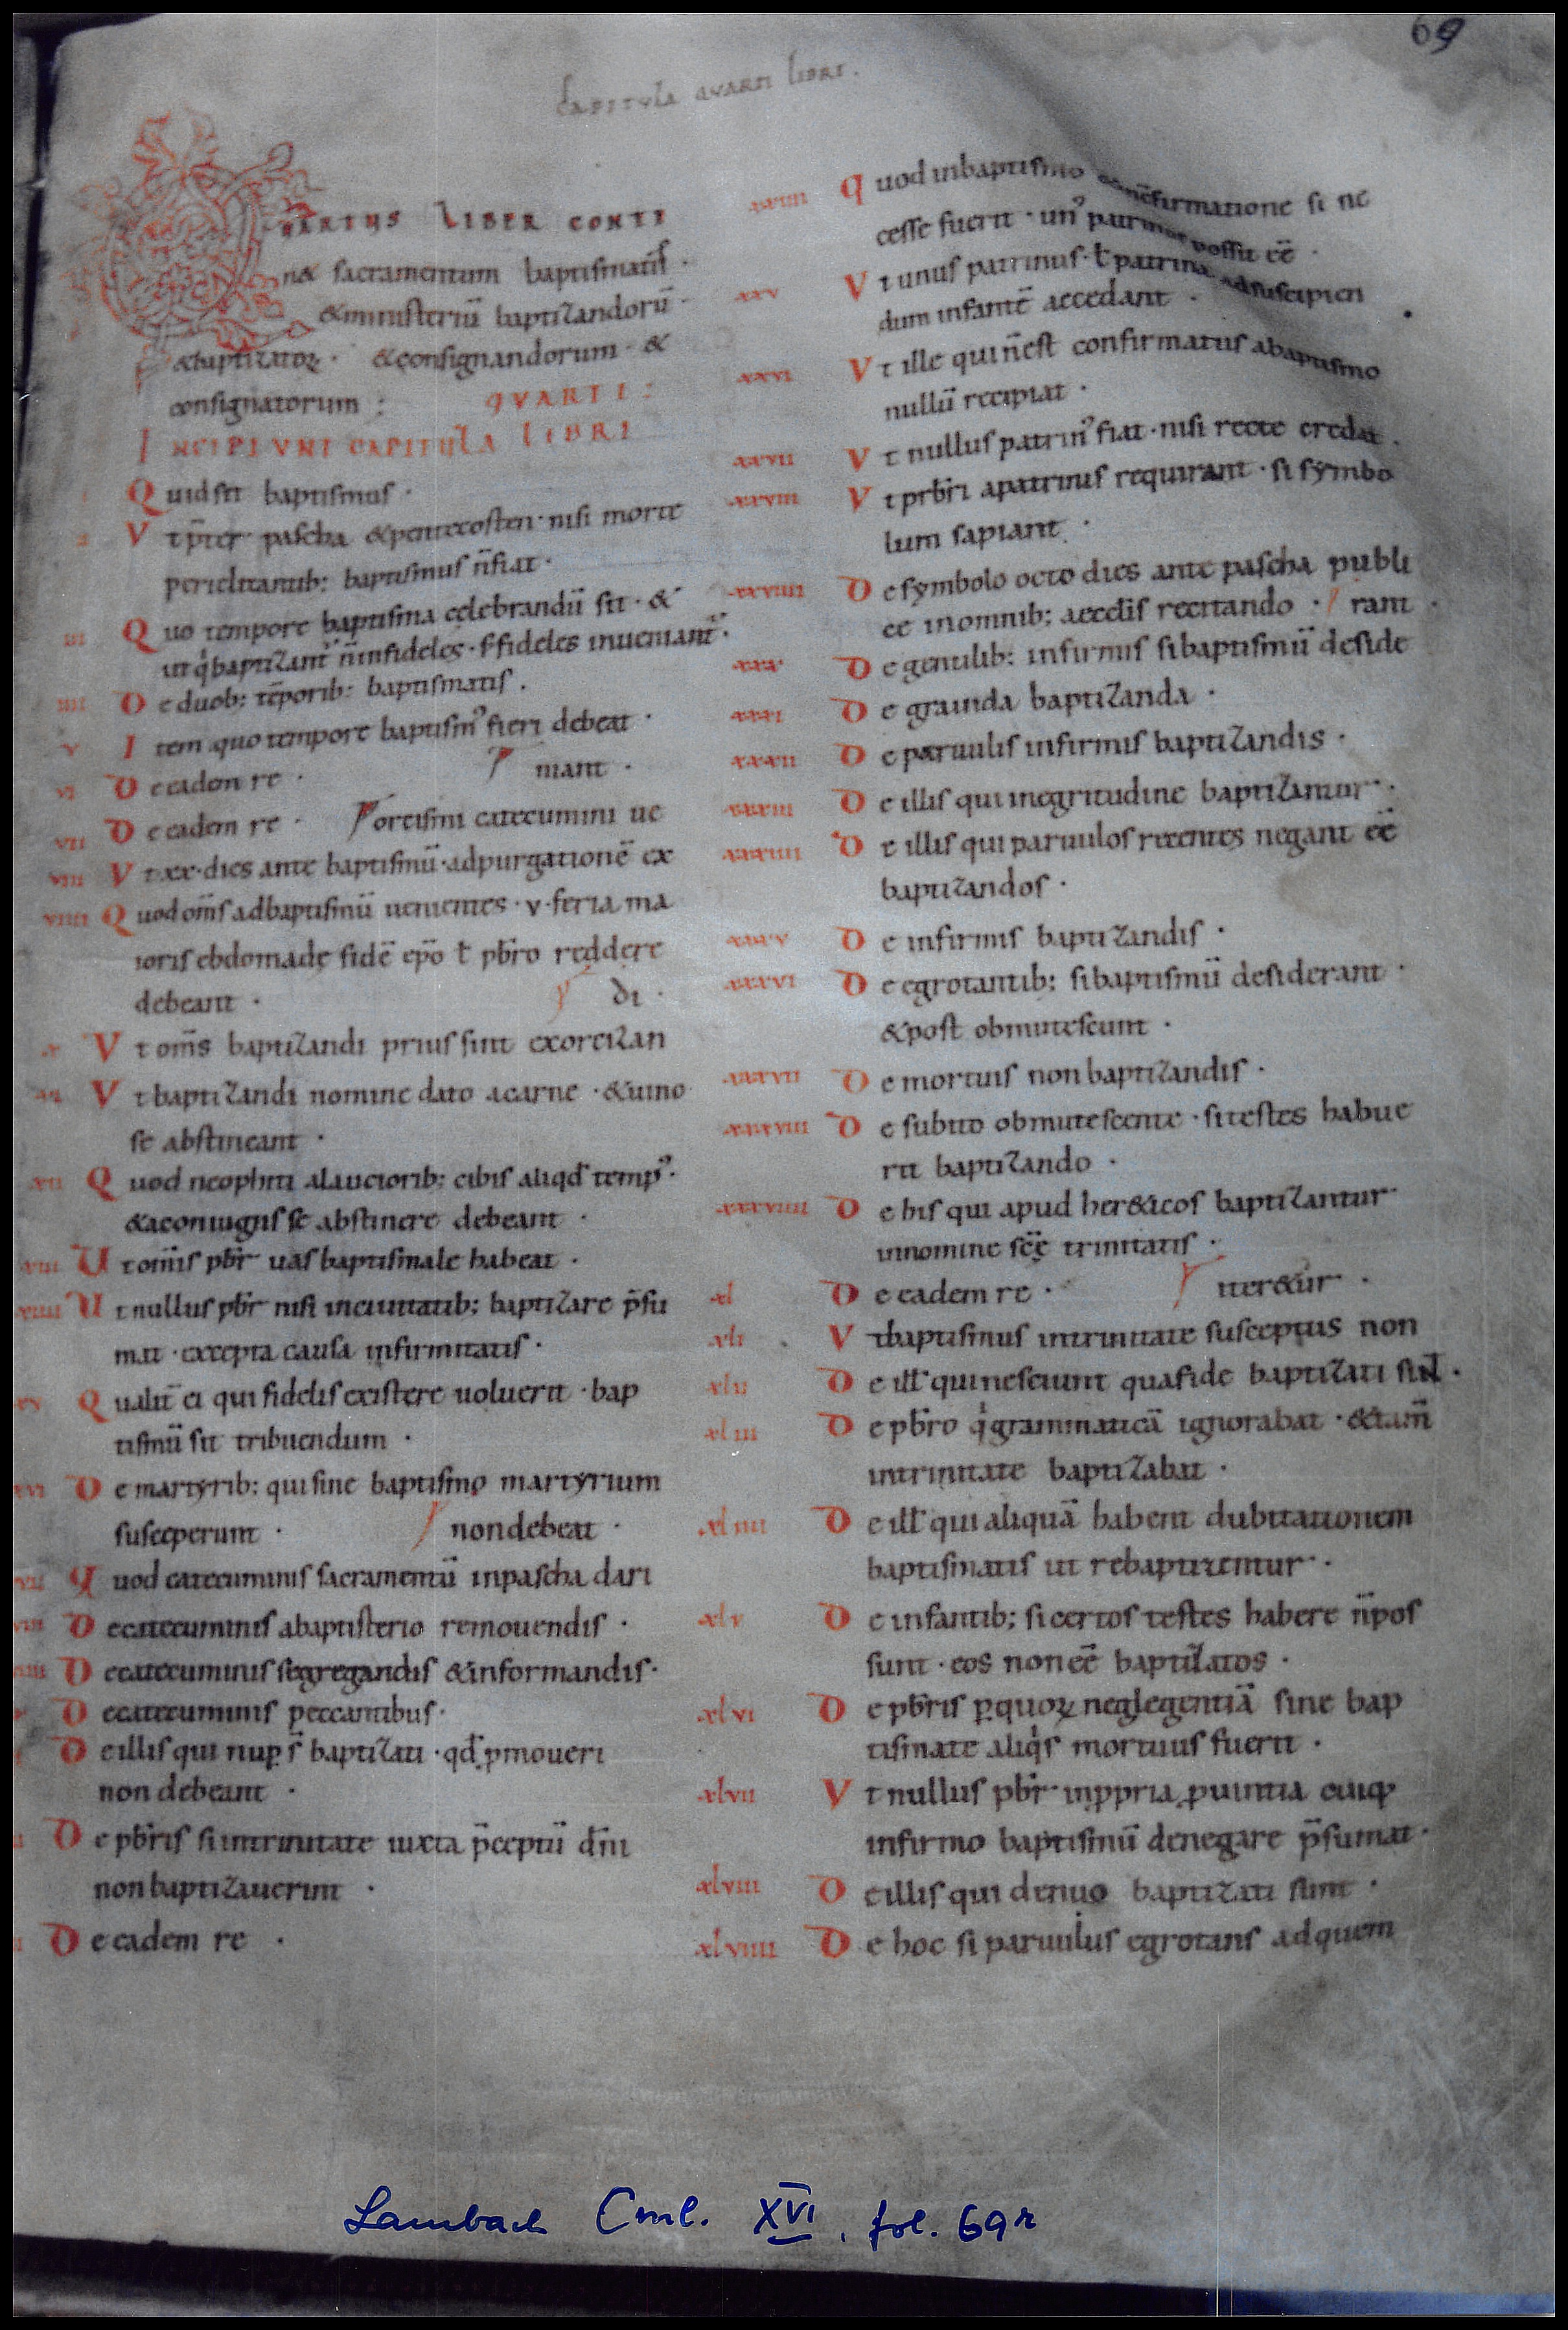 69
CAPITULA QUARTI LIBRI.
QUARTUS LIBER CONTI
n& sacramentum baptismatis.
&ministeriū baptizandorū.
&baptizatoꝝ. &consignandorum &
consignatorum: QVARTI:
INCIPIVNT CAPITULA LIBRI
i Quid sit baptismus.
ii Vt p̄ter pascha &pentecosten nisi morte
periclitantib; baptismus n̄ fiat.
iii Quo tempore baptisma celebrandū sit. &
ut q̇ baptizant̄ n̄ infideles. s; fideles inueniant̄.
iiii De duob; tēporib; baptismatis.
v Item quo tempore baptism᾽ fieri debeat.
vi De eadem re. mant.
vii De eadem re. orcismi catecumini ue
viii Vt xx. dies ante baptismū. ad purgationē ex
viiii Quod om̄s adbaptismū uenientes. v. feria ma
ioris ebdomadę fidē ep̄o ł pb̄ro reddere
debeant. di.
x Vt om̄s baptizandi prius sint exorcizan
xi Vt baptizandi nomine dato a carne. &uino
se abstineant.
xii Quod neophiti a lautiorib; cibis aliqd̄ temp᾽.
&a coniugiis se abstinere debeant.
xiii Ut om̄is pb̄r uas baptismale habeat.
xiiii Ut nullus pb̄r nisi in ciuitatib; baptizare p̄su
mat. excepta causa infirmitatis.
xv Qualit̄ ei qui fidelis existere uoluerit. bap
tismū sit tribuendum.
xvi De martyrib; qui sine baptismo martyrium
susceperunt. non debeat.
xvii Quod catecuminis sacramentū in pascha dari
xviii De catecuminis a baptisterio remouendis.
xviiii De catecuminis segregandis &informandis.
De catecuminis peccantibus.
De illis qui nup̱ s̄ baptizati. qd̄ ꝓmoueri
non debeant.
De pb̄ris si in trinitate iuxta p̄ceptū dn̄i
non baptizauerint.
De eadem re.
xxiiii Quod in baptismo confirmatione si ne
cesse fuerit. un᾽ patrinus possit eē.
xxv Vt unus patrinus. ł patrina ad suscipien
dum infantē accedant.
xxvi Vt ille qui n̄ est confirmatus a baptismo
nullū recipiat.
xxvii Vt nullus patrin᾽ fiat. nisi recte credat.
xxviii Vt prb̄ri a patrinis requirant. si symbo
lum sapiant.
xxviiii De symbolo octo dies ante pascha publi
ce in omnib; aecclīs recitando. rant.
xxx De gentilib; infirmis si baptismū deside
xxxi De grauida baptizanda.
xxxii De paruulis infirmis baptizandis.
xxxiii De illis qui in egritudine baptizantur.
xxxiiii De illis qui paruulos recentes negant eē
baptizandos.
xxxv De infirmis baptizandis.
xxxvi De egrotantib; si baptismū desiderant.
&post obmutescunt.
xxxvii De mortuis non baptizandis.
xxxviii De subito obmutescente. si testes habue
rit baptizando.
xxxviiii De his qui apud her&icos baptizantur
in nomine scę̄ trinitatis.
xl De eadem re. iter&ur.
xli Vt baptismus in trinitate susceptus non
xlii De ill' qui nesciunt qua fide baptizati sunt.
xliii De pb̄ro q̇ grammaticā ignorabat. &tam̄
in trinitate baptizabat.
xliiii De ill' qui aliquā habent dubitationem
baptismatis ut rebaptizentur.
xlv De infantib; si certos testes habere n̄ pos
sunt. eos non eē baptizatos.
xlvi De pb̄ris ꝑ quoꝝ neglegentiā sine bap
tismate aliq̇s mortuus fuerit.
xlvii Vt nullus pb̄r in ꝓpria ꝓuintia cuiq;
infirmo baptismū denegare p̄sumat.
xlviii De illis qui denuo baptizati sunt.
xlviiii De hoc si paruulus egrotans ad quem
Lambach Cml. XVI, fol. 69r